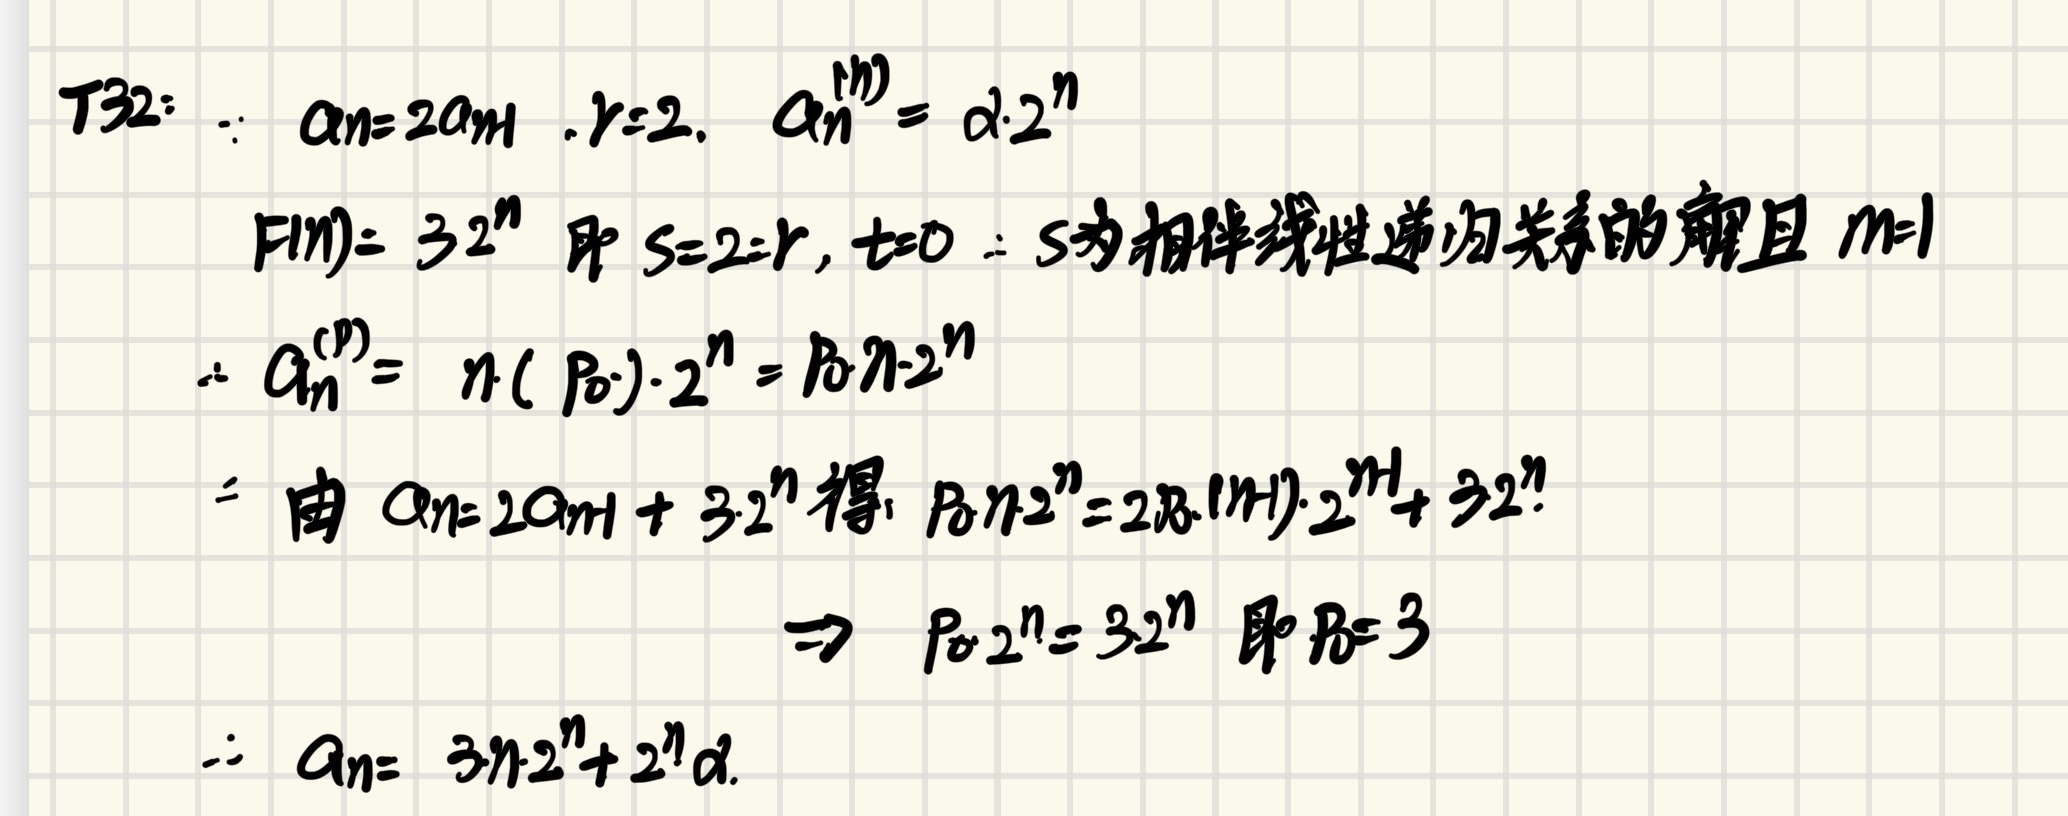 T32: ∵ aₙ=2aₙ₋₁ . r=2. aₙ⁽ʰ⁾= α·2ⁿ
F(n)= 3·2ⁿ 即 S=2=r, t=0 ∴ S为相伴线性递归关系的解且 m=1
∴ aₙ⁽ᵖ⁾= n·( P₀·)·2ⁿ = P₀·n·2ⁿ
= 由 aₙ=2aₙ₋₁ + 3·2ⁿ 得: P₀·n·2ⁿ=2P₀·(n-1)·2ⁿ⁻¹+ 3·2ⁿ.
⇒ P₀·2ⁿ= 3·2ⁿ 即 P₀=3
∴ aₙ= 3·n·2ⁿ+ 2ⁿα.